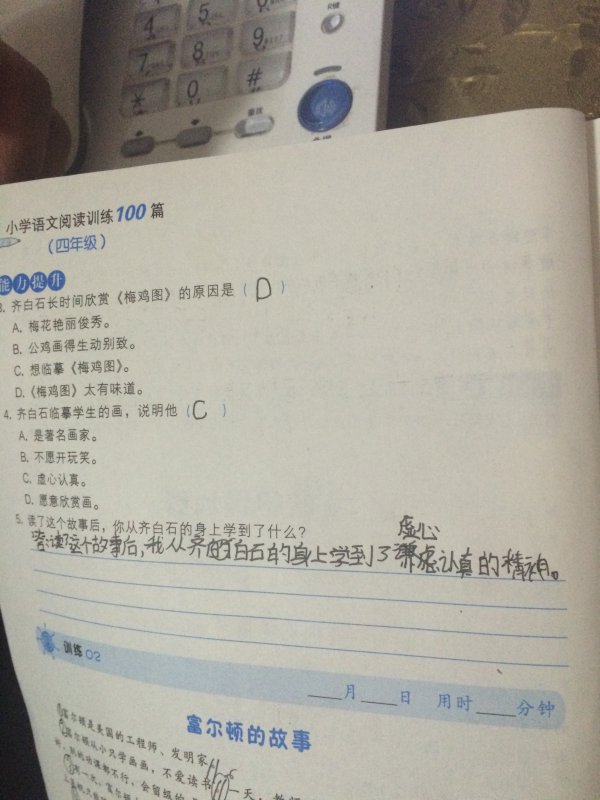 4 5 6
7 8 9
* 0 #
R键
重拨
免提
小学语文阅读训练100篇
（四年级）
能力提升
3. 齐白石长时间欣赏《梅鸡图》的原因是（D）
A. 梅花艳丽俊秀。
B. 公鸡画得生动别致。
C. 想临摹《梅鸡图》。
D.《梅鸡图》太有味道。
4. 齐白石临摹学生的画，说明他（C）
A. 是著名画家。
B. 不愿开玩笑。
C. 虚心认真。
D. 愿意欣赏画。
5. 读了这个故事后，你从齐白石的身上学到了什么？
虚心
答：读了这个故事后，我从齐白石的身上学到了认真的精神。
训练 02
___月___日 用时___分钟
富尔顿的故事
富尔顿是美国的工程师、发明家
富尔顿从小只学画画，不爱读书 一天，教
功课都不行，会留级的
有一次，富尔顿